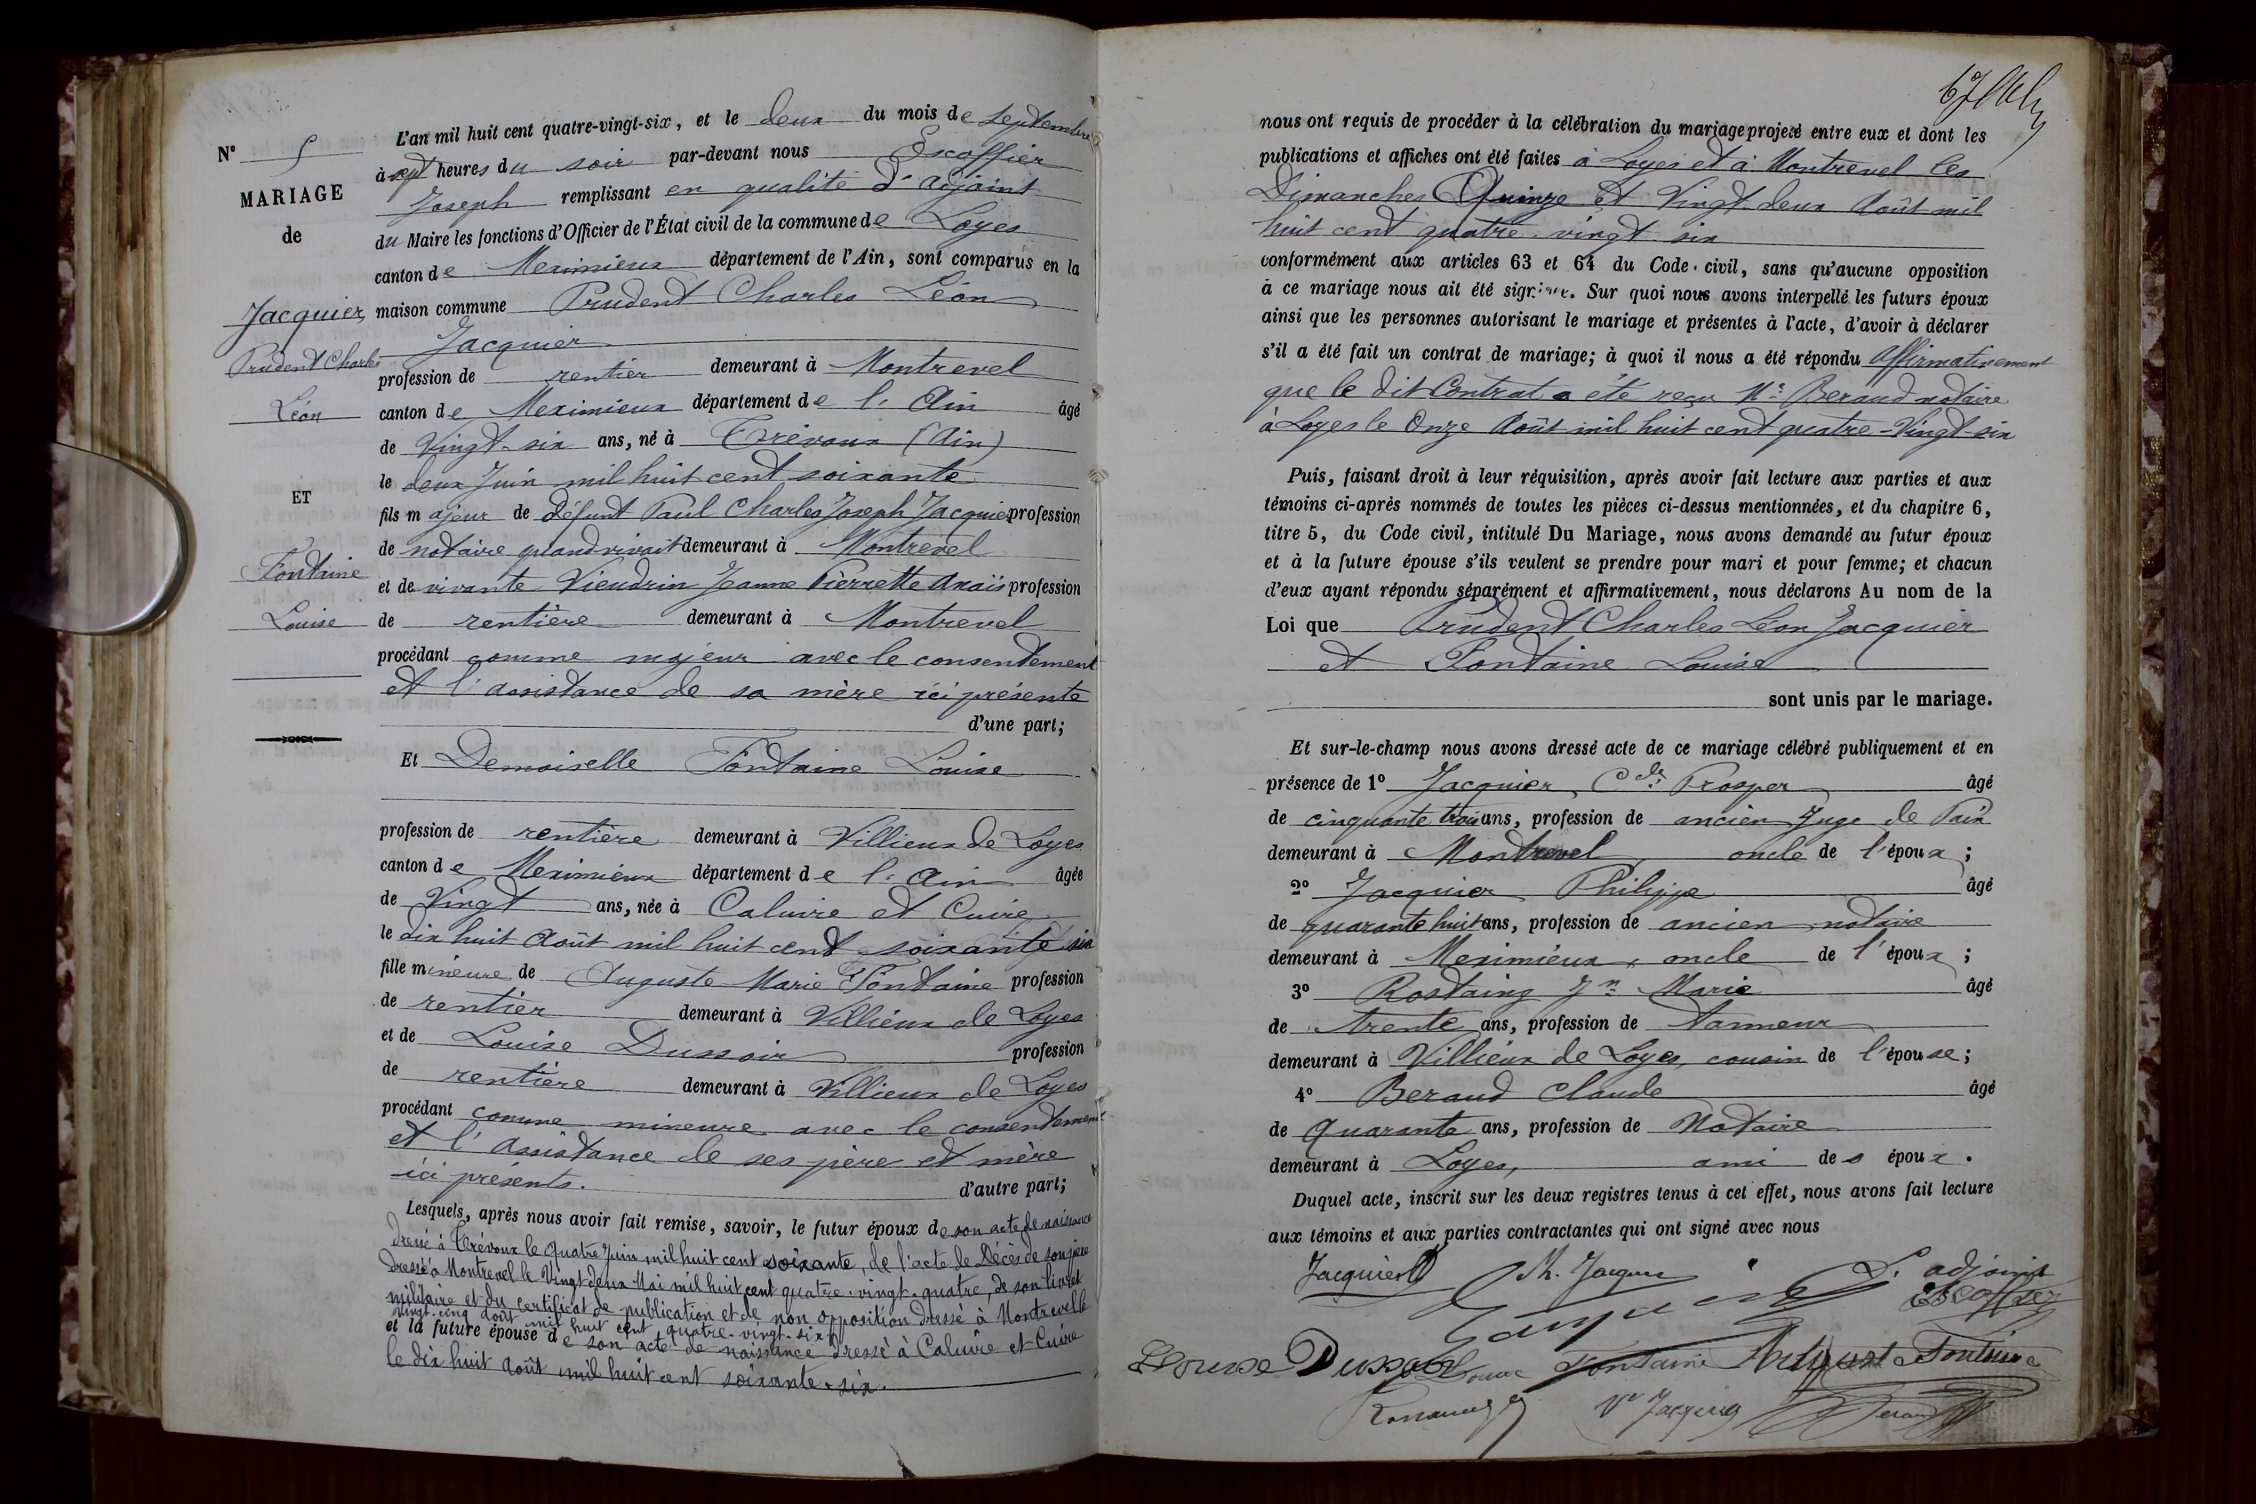 N° 5
MARIAGE
de
Jacquier
Prudent Charles
Léon
ET
Fontaine
Louise
L'an mil huit cent quatre-vingt-six, et le deux du mois de septembre
à sept heures du soir par-devant nous Escoffier
Joseph remplissant en qualité d'adjoint
du Maire les fonctions d'Officier de l'État civil de la commune de Loyes
canton de Meximieux département de l'Ain, sont comparus en la
maison commune Prudent Charles Léon
Jacquier
profession de rentier demeurant à Montrevel
canton de Meximieux département de l'Ain âgé
de Vingt-six ans, né à Trévoux (Ain)
le deux Juin mil huit cent soixante
fils majeur de défunt Paul Charles Joseph Jacquier profession
de notaire quand vivait demeurant à Montrevel
et de vivante Vieudrin Jeanne Pierrette Anaïs profession
de rentière demeurant à Montrevel
procédant comme majeur avec le consentement
et l'assistance de sa mère ici présente
d'une part;
Et Demoiselle Fontaine Louise
profession de rentière demeurant à Villieux de Loyes
canton de Meximieux département de l'Ain âgée
de Vingt ans, née à Caluire et Cuire
le dix huit Août mil huit cent soixante six
fille mineure de Auguste Marie Fontaine profession
de rentier demeurant à Villieux de Loyes
et de Louise Dussoir profession
de rentière demeurant à Villieux de Loyes
procédant comme mineure avec le consentement
et l'assistance de ses père et mère
ici présents. d'autre part;
Lesquels, après nous avoir fait remise, savoir, le futur époux de son acte de naissance
dressé à Trévoux le quatre Juin mil huit cent soixante, de l'acte de Décès de son père
dressé à Montrevel le Vingt-deux Mai mil huit cent quatre-vingt-quatre, de son livret
militaire et du certificat de publication et de non opposition dressé à Montrevelle
vingt-cinq août mil huit cent quatre-vingt-six
et la future épouse de son acte de naissance dressé à Caluire et Cuire
le dix huit Août mil huit cent soixante-six.
67
nous ont requis de procéder à la célébration du mariage projeté entre eux et dont les
publications et affiches ont été faites à Loyes et à Montrevel les
Dimanches Quinze et Vingt-deux Août mil
huit cent quatre-vingt six
conformément aux articles 63 et 64 du Code civil, sans qu'aucune opposition
à ce mariage nous ait été signifiée. Sur quoi nous avons interpellé les futurs époux
ainsi que les personnes autorisant le mariage et présentes à l'acte, d'avoir à déclarer
s'il a été fait un contrat de mariage; à quoi il nous a été répondu affirmativement
que le dit Contrat a été reçu Me Beraud notaire
à Loyes le Onze Août mil huit cent quatre-Vingt-six
Puis, faisant droit à leur réquisition, après avoir fait lecture aux parties et aux
témoins ci-après nommés de toutes les pièces ci-dessus mentionnées, et du chapitre 6,
titre 5, du Code civil, intitulé Du Mariage, nous avons demandé au futur époux
et à la future épouse s'ils veulent se prendre pour mari et pour femme; et chacun
d'eux ayant répondu séparément et affirmativement, nous déclarons Au nom de la
Loi que Prudent Charles Léon Jacquier
et Fontaine Louise
sont unis par le mariage.
Et sur-le-champ nous avons dressé acte de ce mariage célébré publiquement et en
présence de 1° Jacquier Cde Prosper âgé
de cinquante trois ans, profession de ancien Juge de Paix
demeurant à Montrevel, oncle de l'époux;
2° Jacquier Philippe âgé
de quarante huit ans, profession de ancien notaire
demeurant à Meximieux, oncle de l'époux;
3° Rostaing Jn Marie âgé
de trente ans, profession de tanneur
demeurant à Villieux de Loyes, cousin de l'épouse;
4° Beraud Claude âgé
de Quarante ans, profession de Notaire
demeurant à Loyes, ami des époux.
Duquel acte, inscrit sur les deux registres tenus à cet effet, nous avons fait lecture
aux témoins et aux parties contractantes qui ont signé avec nous
Jacquier Ph. Jacquier L. adjoint
Jacquier Escoffier
Louise Dussoir Louise Fontaine Auguste Fontaine
Ve Jacquier Beraud